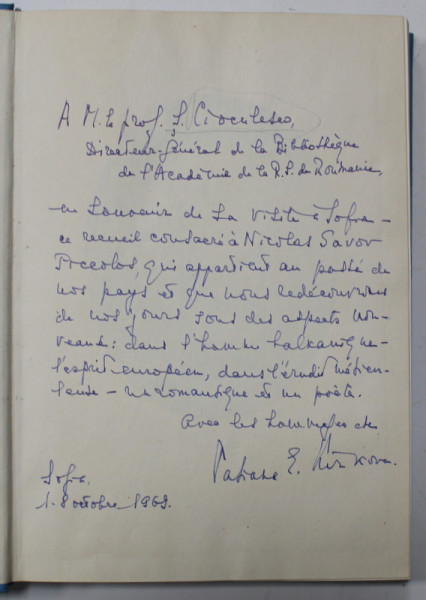 A M. le prof. Ş. Cioculesco,
Directeur-Général de la Bibliothèque
de l'Académie de la R.S. de Roumanie,
en souvenir de sa visite à Sofia –
ce recueil consacré à Nicolas Savov
Piccolos, qui appartient au passé de
nos pays et que nous redécouvrons
de nos jours sous des aspects nou-
veaux: dans l'homme balkanique –
l'esprit européen, dans l'érudit
– un romantique et un poète.
Avec les hommages de
E.
Sofia.
1. 8 octobre 1969.